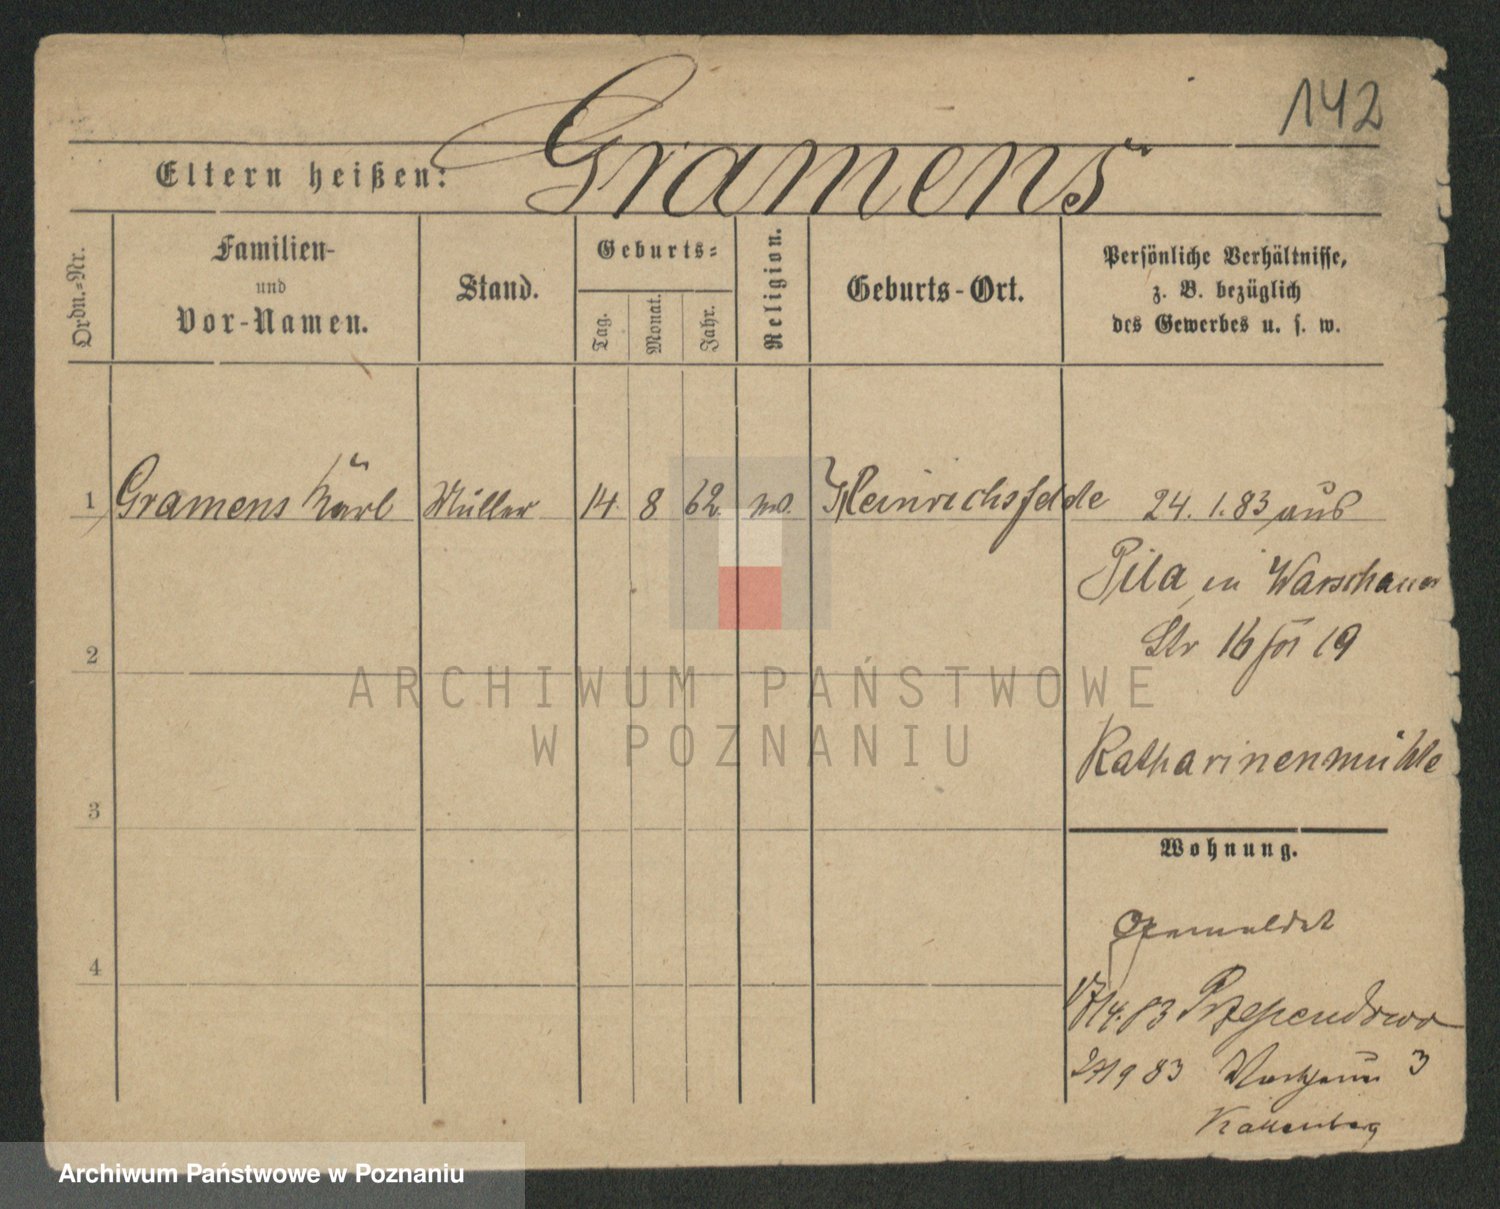 142
Eltern heißen: Gramens
Ordn.-Nr.
Familien-
und
Vor-Namen.
Stand.
Geburts-
Tag.
Monat.
Jahr.
Religion.
Geburts-Ort.
Persönliche Verhältnisse,
z. B. bezüglich
des Gewerbes u. s. w.
1 Gramens Karl Müller 14. 8 62. Heinrichsfelde 24. 1. 83 aus
Pila in Warschauer
Str 16 19
Katharinenmühle
2
3
4
Wohnung.
17/4. 83
83 3
ARCHIWUM PAŃSTWOWE
W POZNANIU
Archiwum Państwowe w Poznaniu